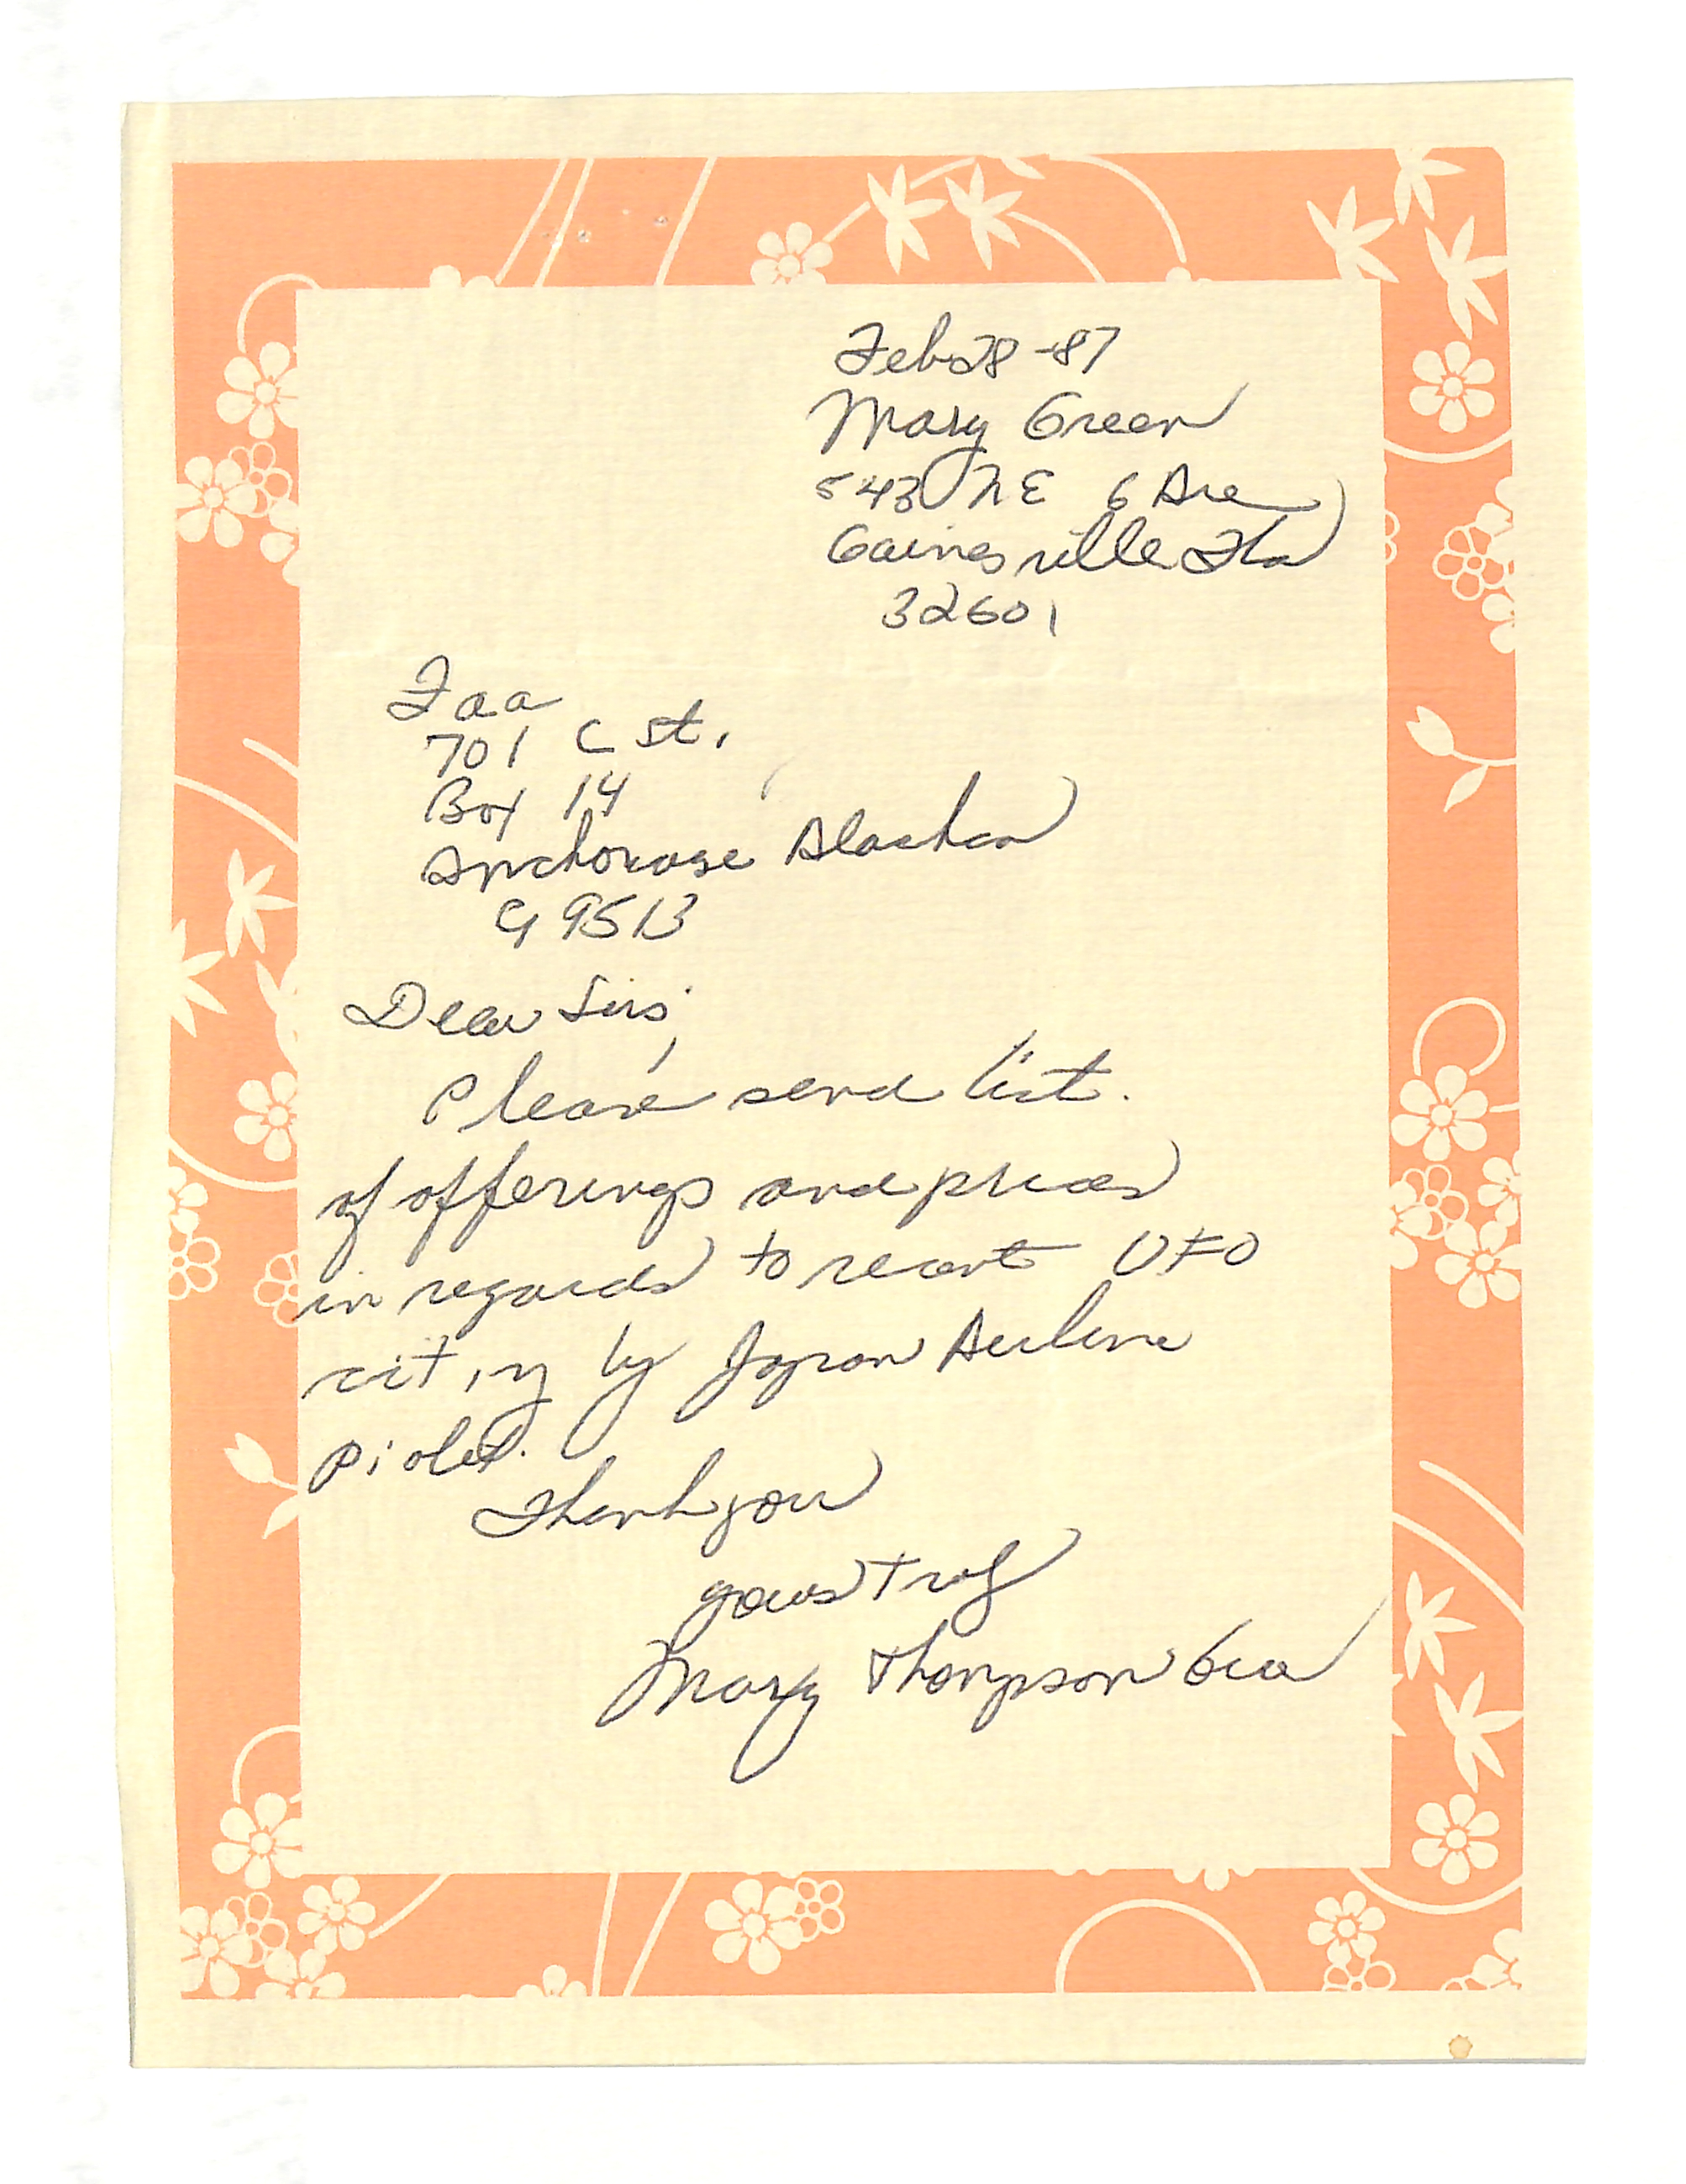 Feb 28 -87
Mary Green
543 NE 6 Ave
Gainesville Fla
32601
Faa
701 C St.
Box 14
Anchorage Alaska
99513
Dear Sirs;
Please send list.
of offerings and prices
in regards to recent UFO
citing by Japan Airline
Piolet.
Thank you
yours truly
Mary Thompson Green